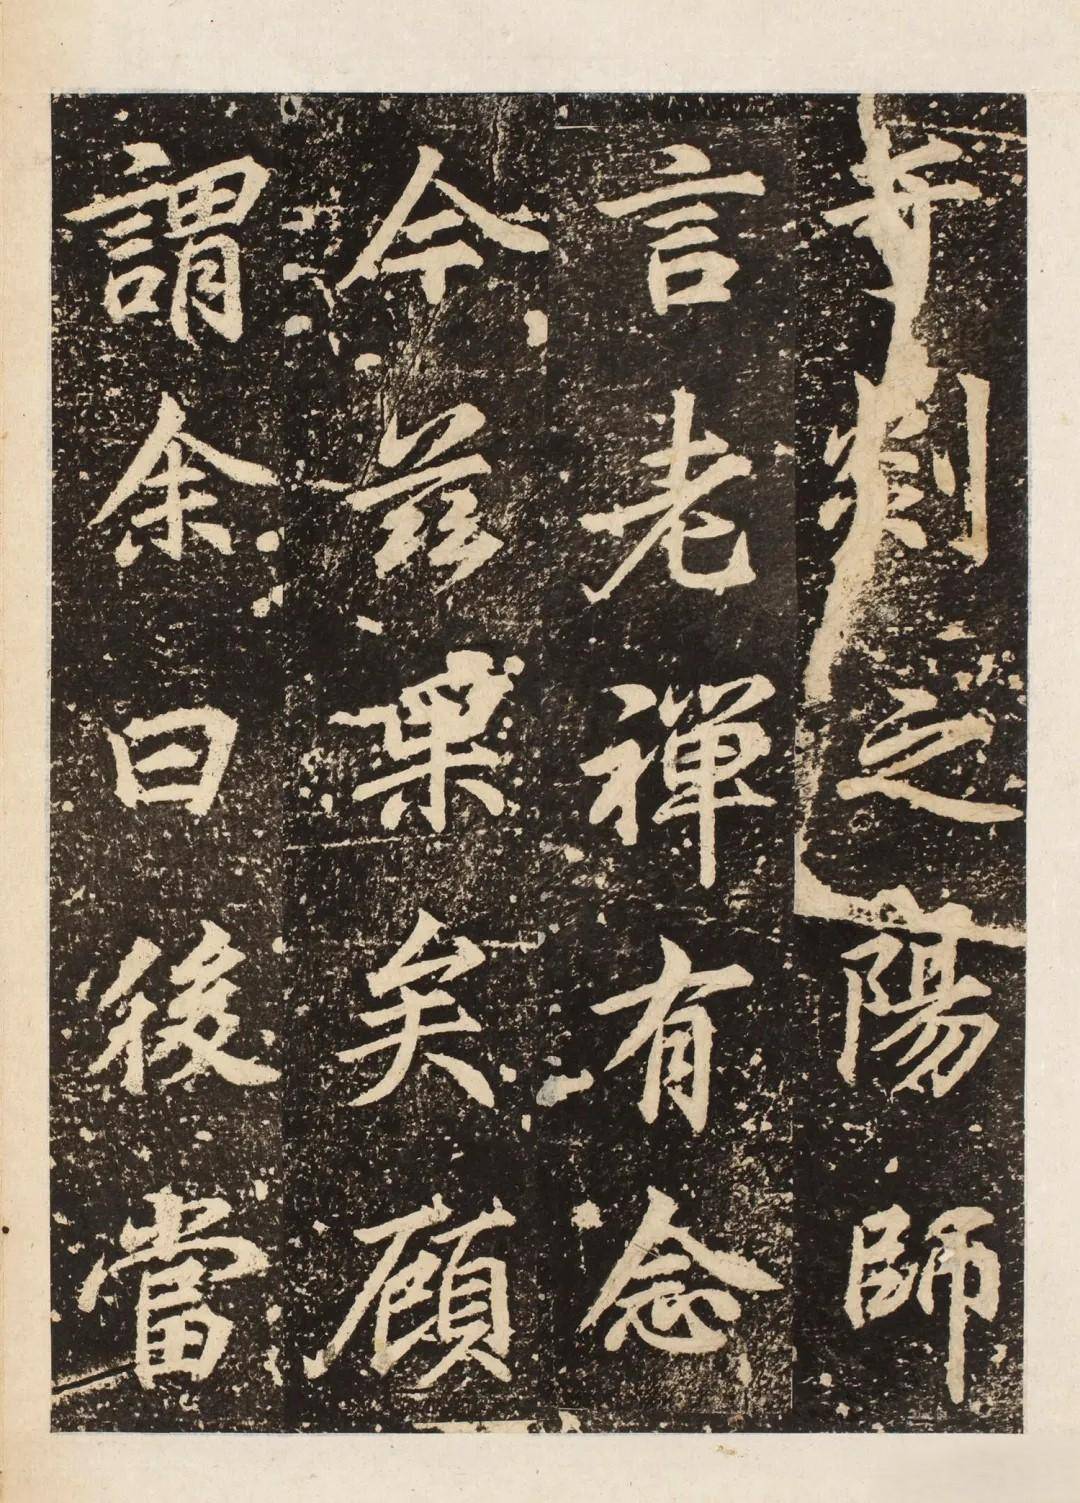 剡之陽師
言老禪有念
今茲果矣顧
謂余曰後當